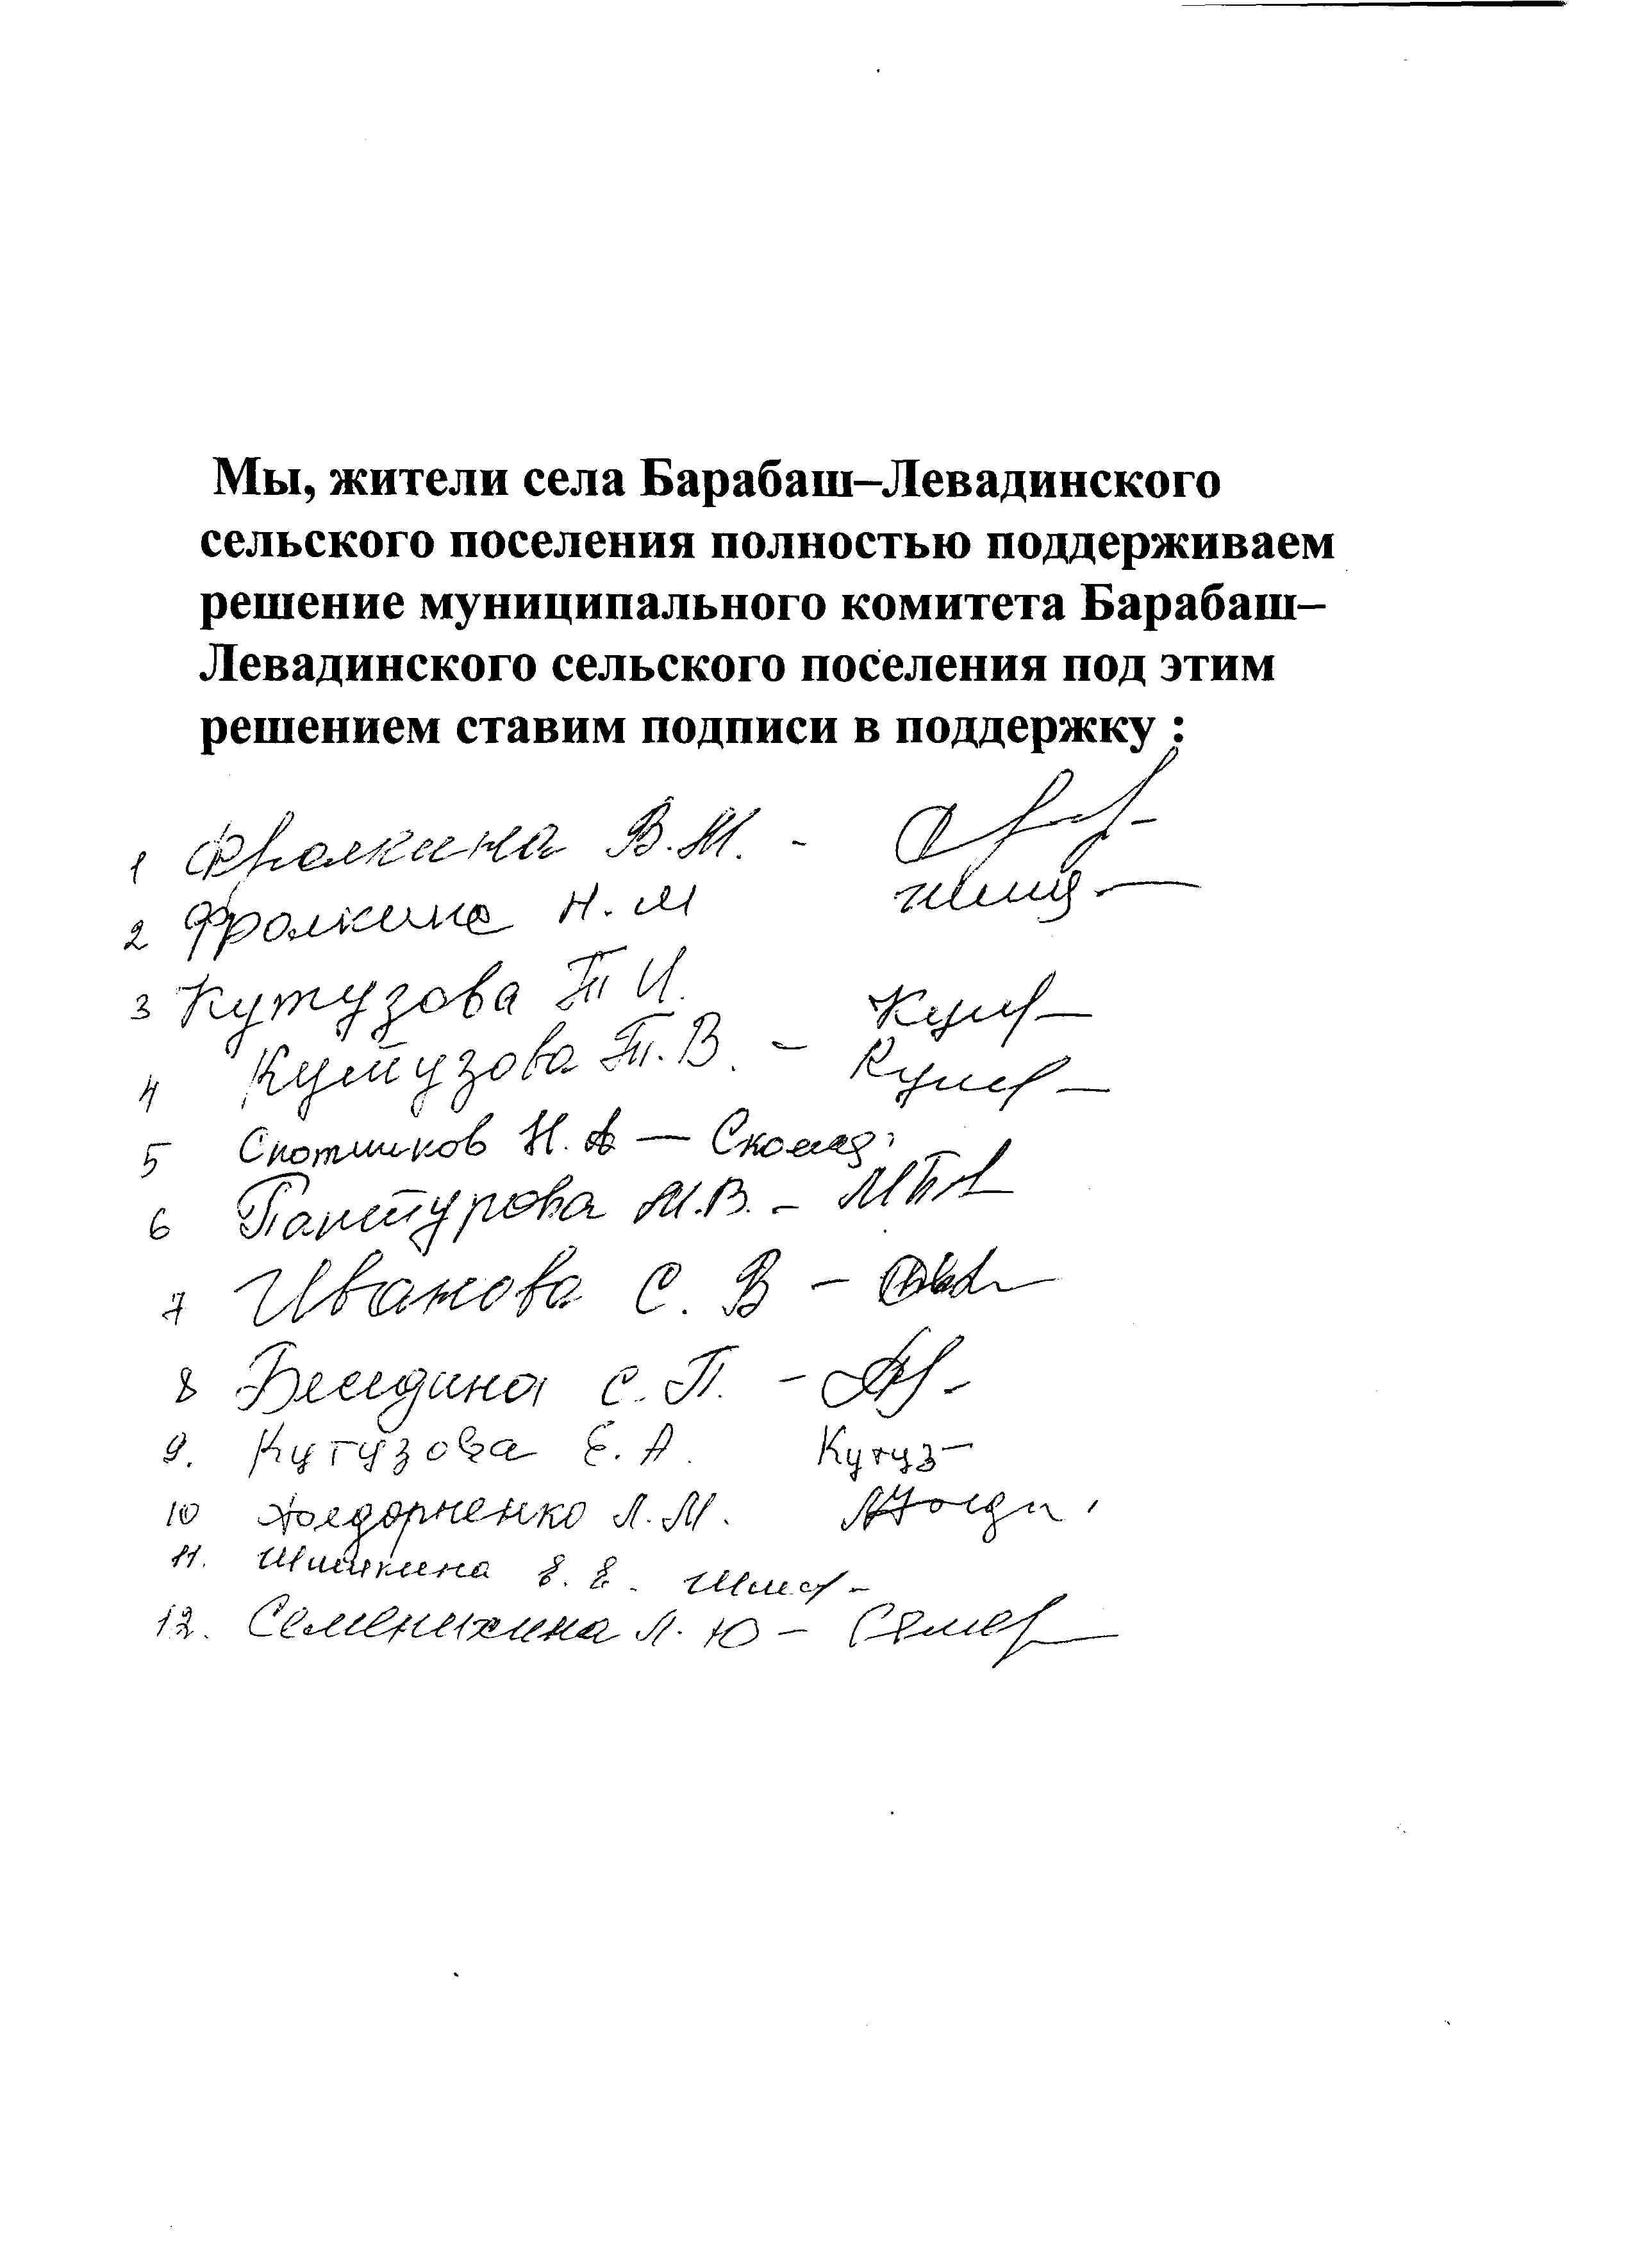 Мы, жители села Барабаш–Левадинского
сельского поселения полностью поддерживаем
решение муниципального комитета Барабаш–
Левадинского сельского поселения под этим
решением ставим подписи в поддержку :
1 Фролкина В.М. -
2 Фролкина Н.М
3 Кутузова Т И.
4 Кутузова Т.В. -
5 Скотников Н.А —
6 Пантурова М.В. -
7 Иванова С. В -
8 Беседина С. П. -
9. Кутузова Е. А. Кутуз
10 Л.М.
11. Шишкина Е. Е.
12. Семенихина Л. Ю -